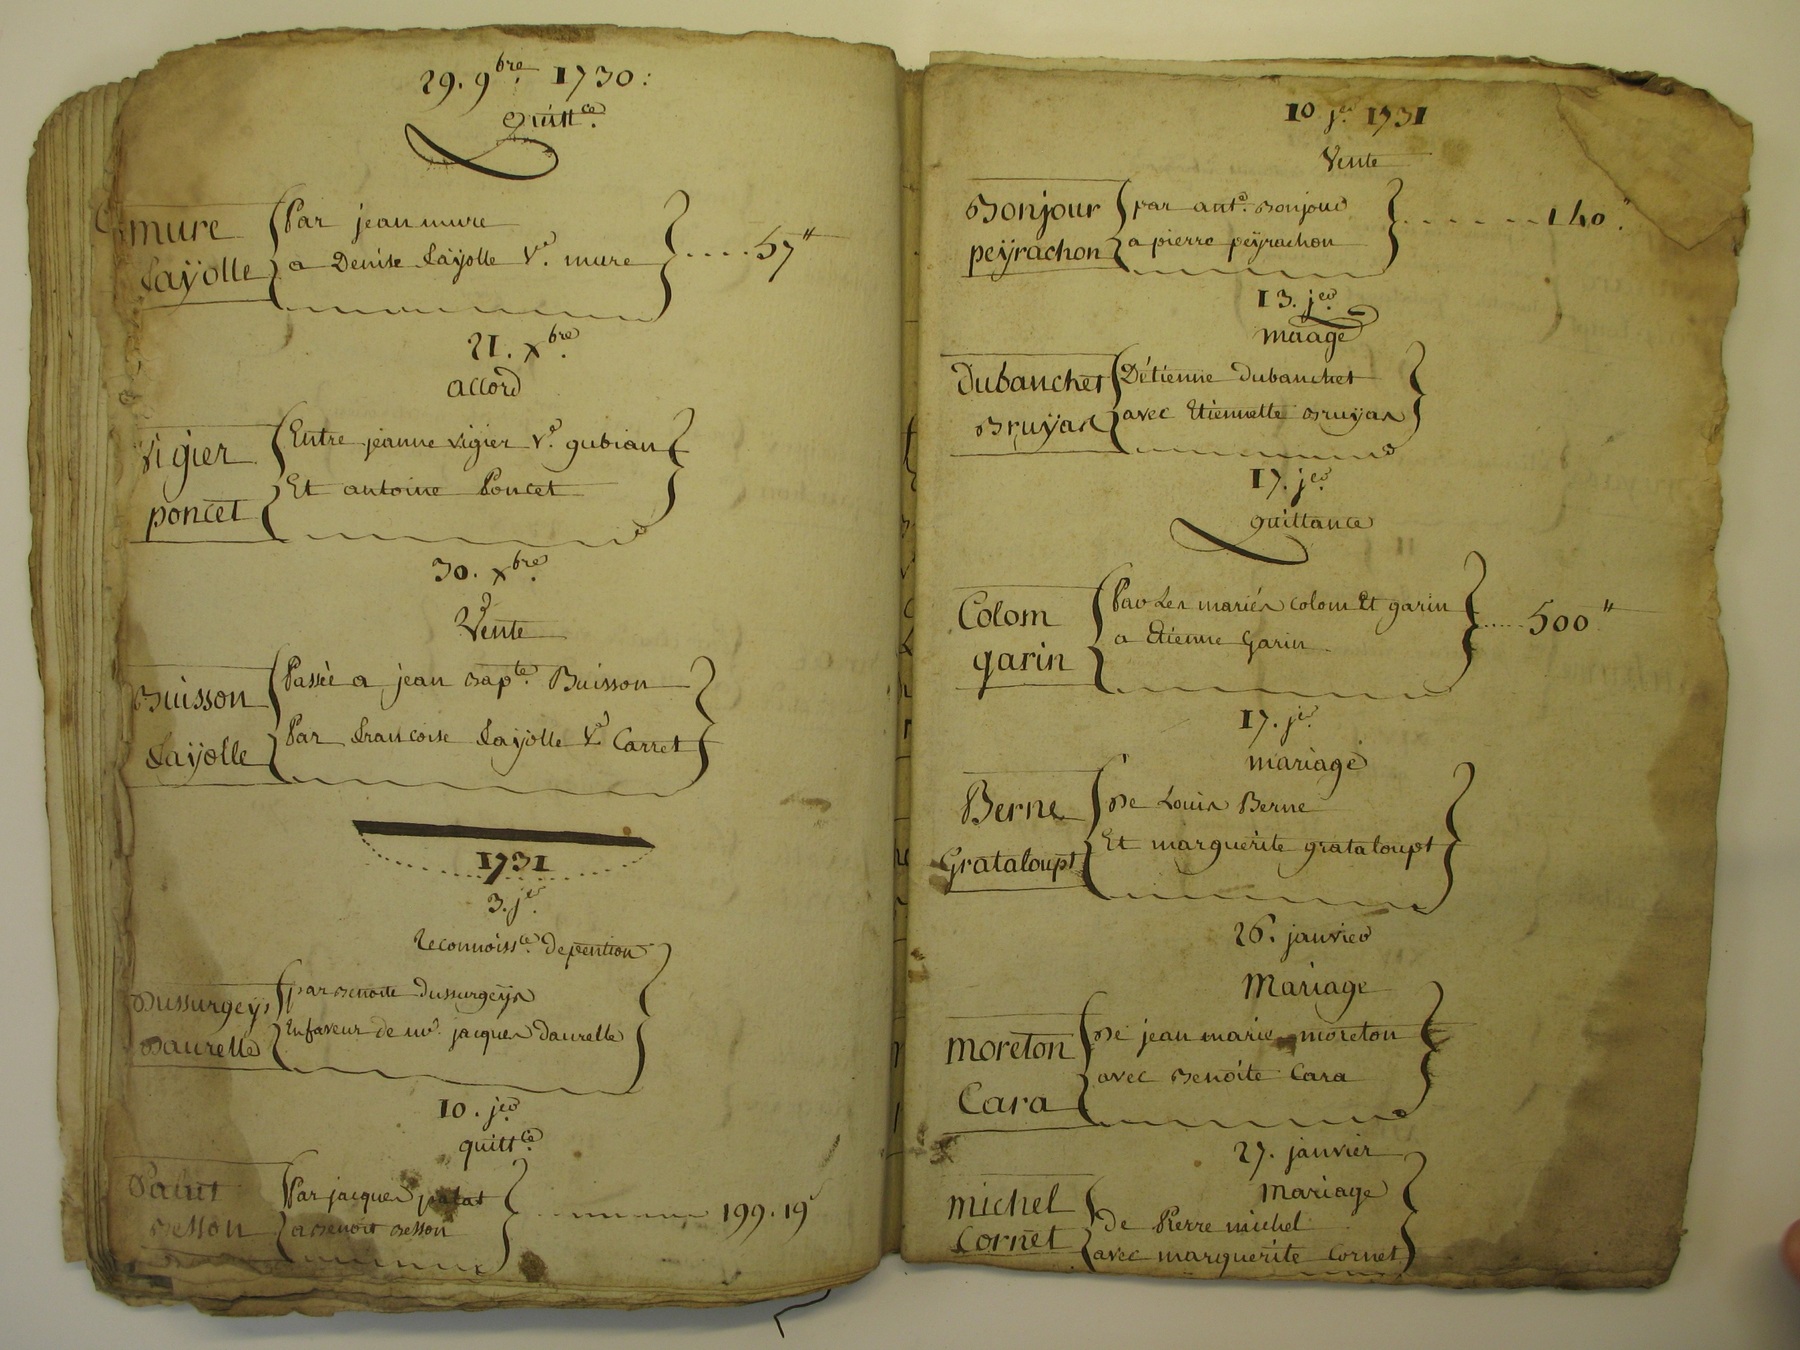 29. 9bre 1730:
Quittce.
mure
Layolle
Par jean mure
a Denise Laÿolle Ve. mure
....57"
21. xbre
accord
Vigier
poncet
Entre jeanne vigier Ve. gubian
Et antoine Poncet
30. xbre
Vente
Buisson
Laÿolle
Passée a jean Bapte. Buisson
Par francoise Laÿolle Ve Carret
1731
3. jer.
Reconnoissce. de pention
Dussurgeÿs
Daurelle
par Benoite Dussurgeÿs
En faveur de mr. jacques Daurelle
10. jer.
quittce.
Besson
Par jacques
a Benoit Besson
199.19s
10 jer. 1731
Vente
Bonjour
peÿrachon
par ante. Bonjour
a pierre peÿrachon
140"
13. jer.
maage
Dubanchet
Bruÿas
D'étienne dubanchet
avec Etiennette Bruÿas
17. jer.
quittance
Colom
garin
Par Les mariés colom Et garin
a Etienne Garin
....500"
17. jer.
mariage
Berne
Grataloupt
De Louis Berne
Et marguerite grataloupt
26. janvier
Mariage
moreton
Cara
De jean marie moreton
avec Benoite Cara
27. janvier
Mariage
michel
Cornet
de Pierre michel
avec marguerite Cornet